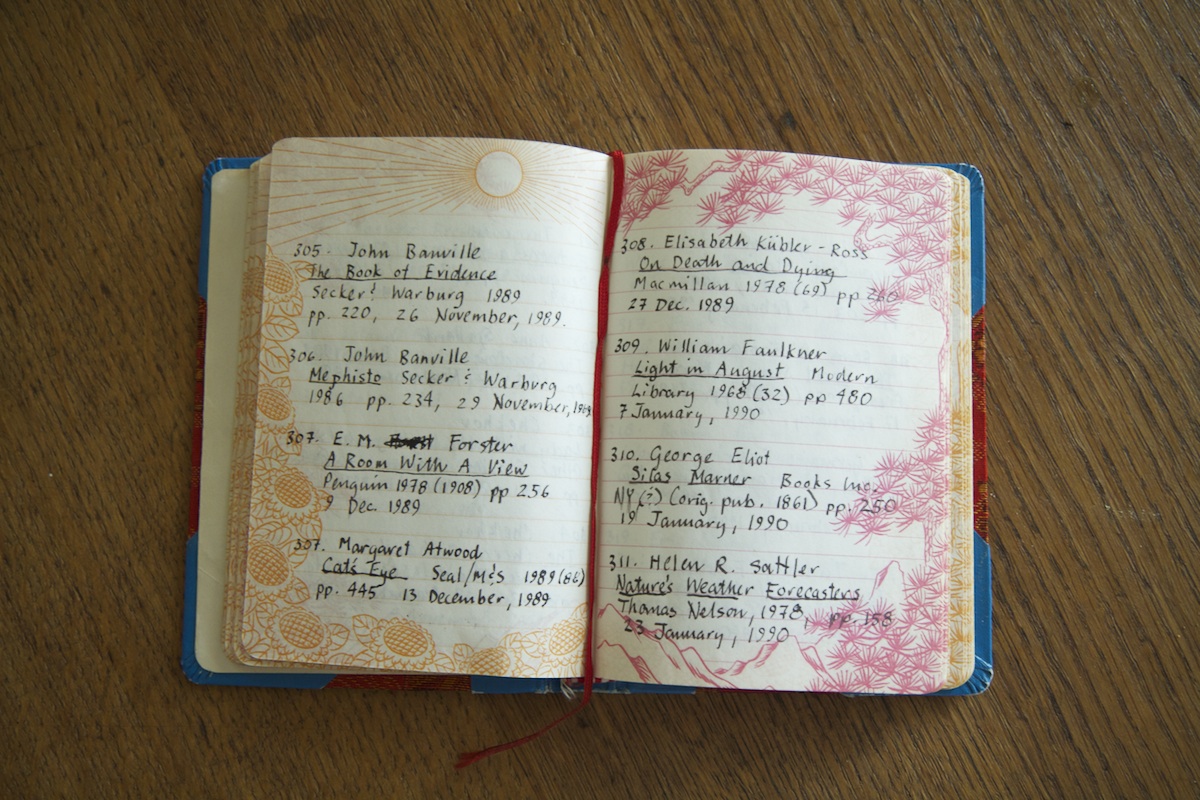 305. John Banville
The Book of Evidence
Secker & Warburg 1989
pp. 220, 26 November, 1989.
306. John Banville
Mephisto Secker & Warburg
1986 pp. 234, 29 November, 1989
307. E. M. Forster
A Room With A View
Penguin 1978 (1908) pp 256
9 Dec. 1989
307. Margaret Atwood
Cat's Eye Seal/M&S 1989 (88)
pp. 445 13 December, 1989
308. Elisabeth Kübler-Ross
On Death and Dying
Macmillan 1978 (69) pp 260
27 Dec. 1989
309. William Faulkner
Light in August Modern
Library 1968 (32) pp 480
7 January, 1990
310. George Eliot
Silas Marner Books Inc.
NY (?) (orig. pub. 1861) pp. 250
19 January, 1990
311. Helen R. Sattler
Nature's Weather Forecasters
Thomas Nelson, 1978, pp. 158
23 January, 1990